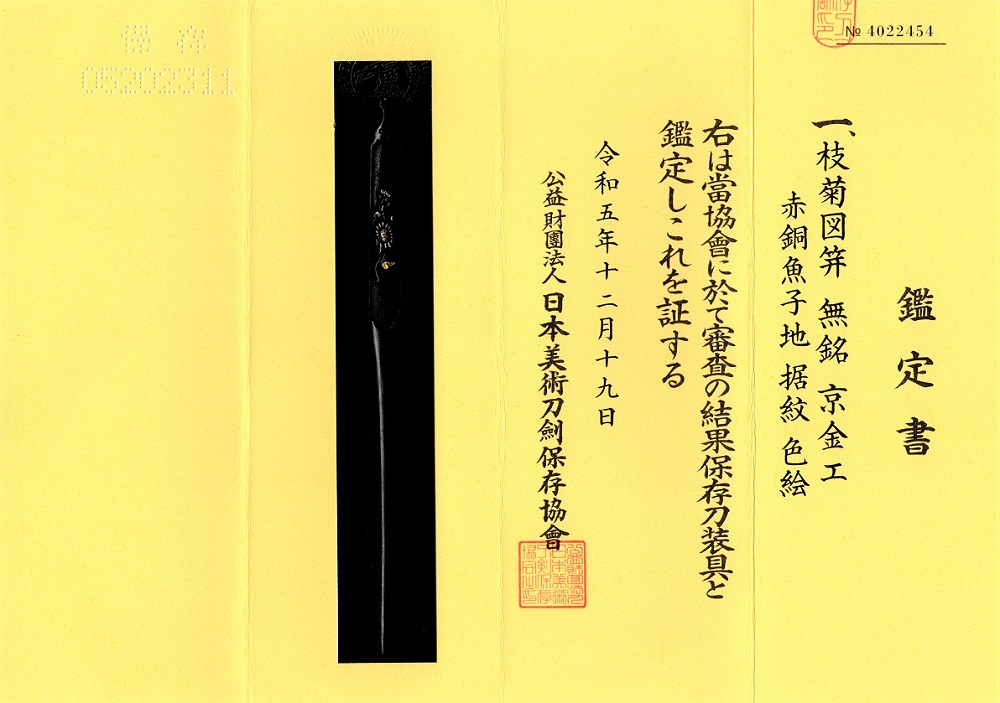 № 4022454
鑑定書
一、枝菊図笄 無銘 京金工
赤銅魚子地 据紋 色絵
右は當協會に於て審査の結果保存刀装具と
鑑定しこれを証する
令和五年十二月十九日
公益財團法人 日本美術刀劍保存協會
保存
05202311